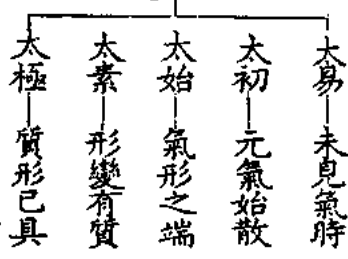 太易—未見氣時
太初—元氣始散
太始—氣形之端
太素—形變有質
太極—質形已具